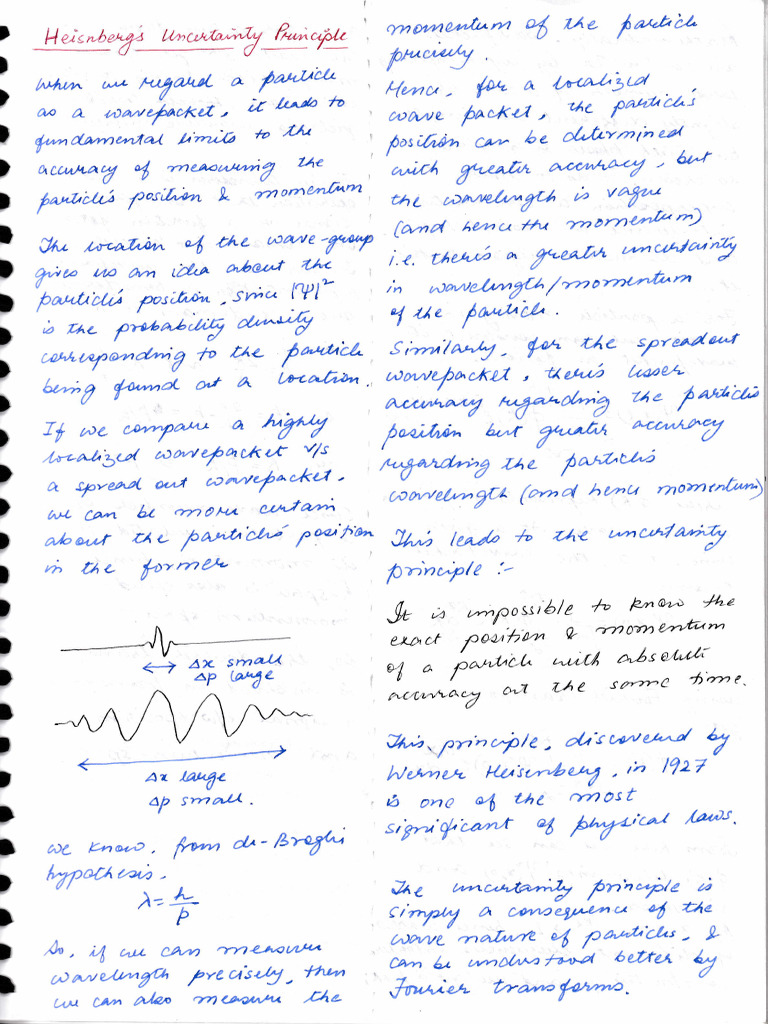 Heisnberg's Uncertainty Principle
When we regard a particle
as a wavepacket, it leads to
fundamental limits to the
accuracy of measuring the
particle's position & momentum
The location of the wave-group
gives us an idea about the
particle's position, since |Ψ|²
is the probability density
corresponding to the particle
being found at a location.
If we compare a highly
localized wavepacket v/s
a spread out wavepacket,
we can be more certain
about the particle's position
in the former
Δx small
Δp large
Δx large
Δp small.
We know, from de-Broglie
hypothesis,
λ = h/p
So, if we can measure
wavelength precisely, then
we can also measure the
momentum of the particle
precisely.
Hence, for a localized
wave packet, the particle's
position can be determined
with greater accuracy, but
the wavelength is vague
(and hence the momentum)
i.e. there's a greater uncertainty
in wavelength/momentum
of the particle.
Similarly, for the spreadout
wavepacket, there's lesser
accuracy regarding the particle's
position but greater accuracy
regarding the particle's
wavelength (and hence momentum)
This leads to the uncertainty
principle :-
It is impossible to know the
exact position & momentum
of a particle with absolute
accuracy at the same time.
This principle, discovered by
Werner Heisenberg, in 1927
is one of the most
significant of physical laws.
The uncertainty principle is
simply a consequence of the
wave nature of particles, &
can be understood better by
Fourier transforms.